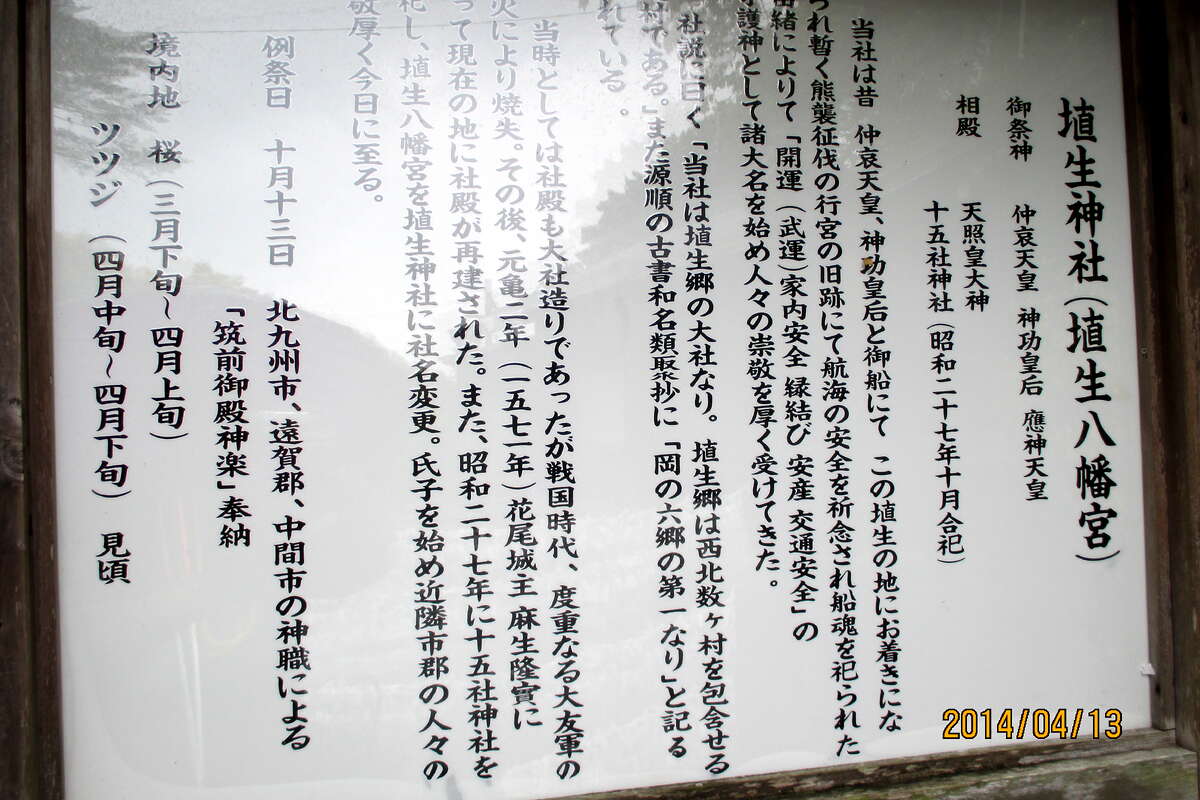 埴生神社(埴生八幡宮)
御祭神 仲哀天皇 神功皇后 應神天皇
相殿 天照皇大神
十五社神社(昭和二十七年十月合祀)
当社は昔 仲哀天皇、神功皇后と御船にて この埴生の地にお着きにな
られ暫く熊襲征伐の行宮の旧跡にて航海の安全を祈念され船魂を祀られた
由緒によりて「開運(武運)家内安全 縁結び 安産 交通安全」の
護神として諸大名を始め人々の崇敬を厚く受けてきた。
社説に曰く「当社は埴生郷の大社なり。埴生郷は西北数ヶ村を包含せる
村である。」また源順の古書和名類聚抄に「岡の六郷の第一なり」と記る
れている。
当時としては社殿も大社造りであったが戦国時代、度重なる大友軍の
火により焼失。その後、元亀二年(一五七一年)花尾城主 麻生隆實に
って現在の地に社殿が再建された。また、昭和二十七年に十五社神社を
祀し、埴生八幡宮を埴生神社に社名変更。氏子を始め近隣市郡の人々の
敬厚く今日に至る。
例祭日 十月十三日 北九州市、遠賀郡、中間市の神職による
「筑前御殿神楽」奉納
境内地 桜(三月下旬~四月上旬)
ツツジ(四月中旬~四月下旬) 見頃
2014/04/13